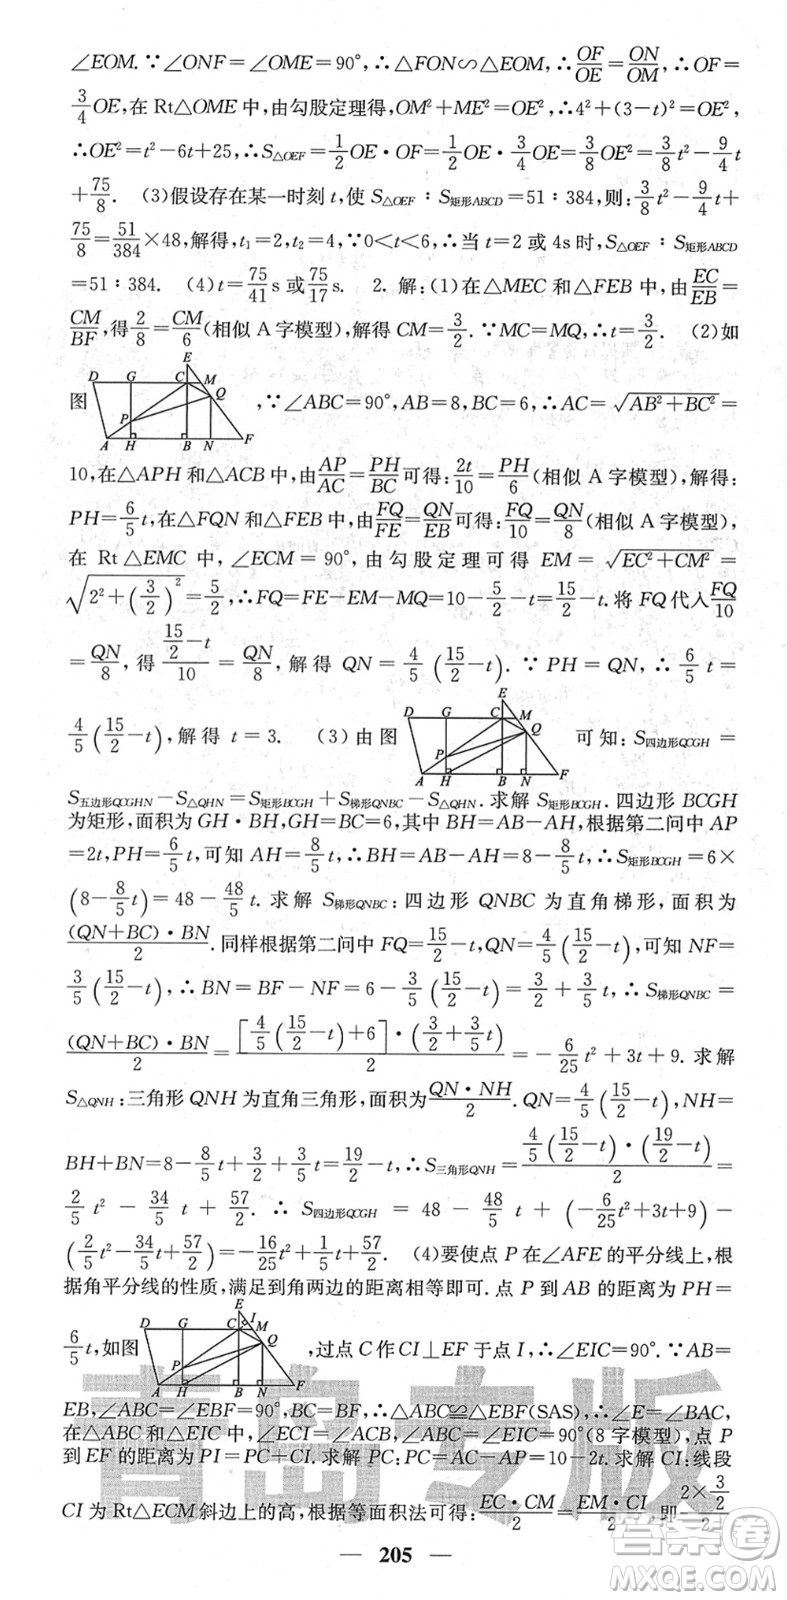 ∠EOM.∵∠ONF=∠OME=90°,∴△FON∽△EOM,∴OF/OE=ON/OM,∴OF=
3/4OE,在Rt△OME中,由勾股定理得,OM²+ME²=OE²,∴4²+(3-t)²=OE²,
∴OE²=t²-6t+25,∴S△OEF=1/2OE·OF=1/2OE·3/4OE=3/8OE²=3/8t²-9/4t
+75/8. (3)假设存在某一时刻t,使S△OEF:S矩形ABCD=51:384,则:3/8t²-9/4t+
75/8=51/384×48,解得,t₁=2,t₂=4,∵0<t<6,∴当t=2或4s时,S△OEF:S矩形ABCD
=51:384. (4)t=75/41s或75/17s. 2. 解:(1)在△MEC和△FEB中,由EC/EB=
CM/BF,得2/8=CM/6(相似A字模型),解得CM=3/2.∵MC=MQ,∴t=3/2. (2)如
图
E
D G C M
Q
P
A H B N F
,∵∠ABC=90°,AB=8,BC=6,∴AC=√(AB²+BC²)=
10,在△APH和△ACB中,由AP/AC=PH/BC可得:2t/10=PH/6(相似A字模型),解得:
PH=6/5t,在△FQN和△FEB中,由FQ/FE=QN/EB可得:FQ/10=QN/8(相似A字模型),
在Rt△EMC中,∠ECM=90°,由勾股定理可得EM=√(EC²+CM²)=
√(2²+(3/2)²)=5/2,∴FQ=FE-EM-MQ=10-5/2-t=15/2-t.将FQ代入FQ/10
=QN/8,得(15/2-t)/10=QN/8,解得QN=4/5(15/2-t).∵PH=QN,∴6/5t=
4/5(15/2-t),解得t=3. (3)由图
E
D G C M
Q
P
A H B N F
可知:S四边形QCGH=
S五边形QCGHN-S△QHN=S矩形BCGH+S梯形QNBC-S△QHN.求解S矩形BCGH.四边形BCGH
为矩形,面积为GH·BH,GH=BC=6,其中BH=AB-AH,根据第二问中AP
=2t,PH=6/5t,可知AH=8/5t,∴BH=AB-AH=8-8/5t,∴S矩形BCGH=6×
(8-8/5t)=48-48/5t.求解S梯形QNBC:四边形QNBC为直角梯形,面积为
(QN+BC)·BN/2.同样根据第二问中FQ=15/2-t,QN=4/5(15/2-t),可知NF=
3/5(15/2-t),∴BN=BF-NF=6-3/5(15/2-t)=3/2+3/5t,∴S梯形QNBC=
(QN+BC)·BN/2=[4/5(15/2-t)+6]·(3/2+3/5t)/2=-6/25t²+3t+9.求解
S△QNH:三角形QNH为直角三角形,面积为QN·NH/2.QN=4/5(15/2-t),NH=
BH+BN=8-8/5t+3/2+3/5t=19/2-t,∴S三角形QNH=4/5(15/2-t)·(19/2-t)/2=
2/5t²-34/5t+57/2.∴S四边形QCGH=48-48/5t+(-6/25t²+3t+9)-
(2/5t²-34/5t+57/2)=-16/25t²+1/5t+57/2. (4)要使点P在∠AFE的平分线上,根
据角平分线的性质,满足到角两边的距离相等即可.点P到AB的距离为PH=
6/5t,如图
E
I
D G C M
Q
P
A H B N F
,过点C作CI⊥EF于点I,∴∠EIC=90°.∵AB=
EB,∠ABC=∠EBF=90°,BC=BF,∴△ABC≌△EBF(SAS),∴∠E=∠BAC,
在△ABC和△EIC中,∠ECI=∠ACB,∠ABC=∠EIC=90°(8字模型),点P
到EF的距离为PI=PC+CI.求解PC:PC=AC-AP=10-2t.求解CI:线段
CI为Rt△ECM斜边上的高,根据等面积法可得:EC·CM/2=EM·CI/2,即(2×3/2)/2
— 205 —
青岛专版
答案圈
MXQE.COM